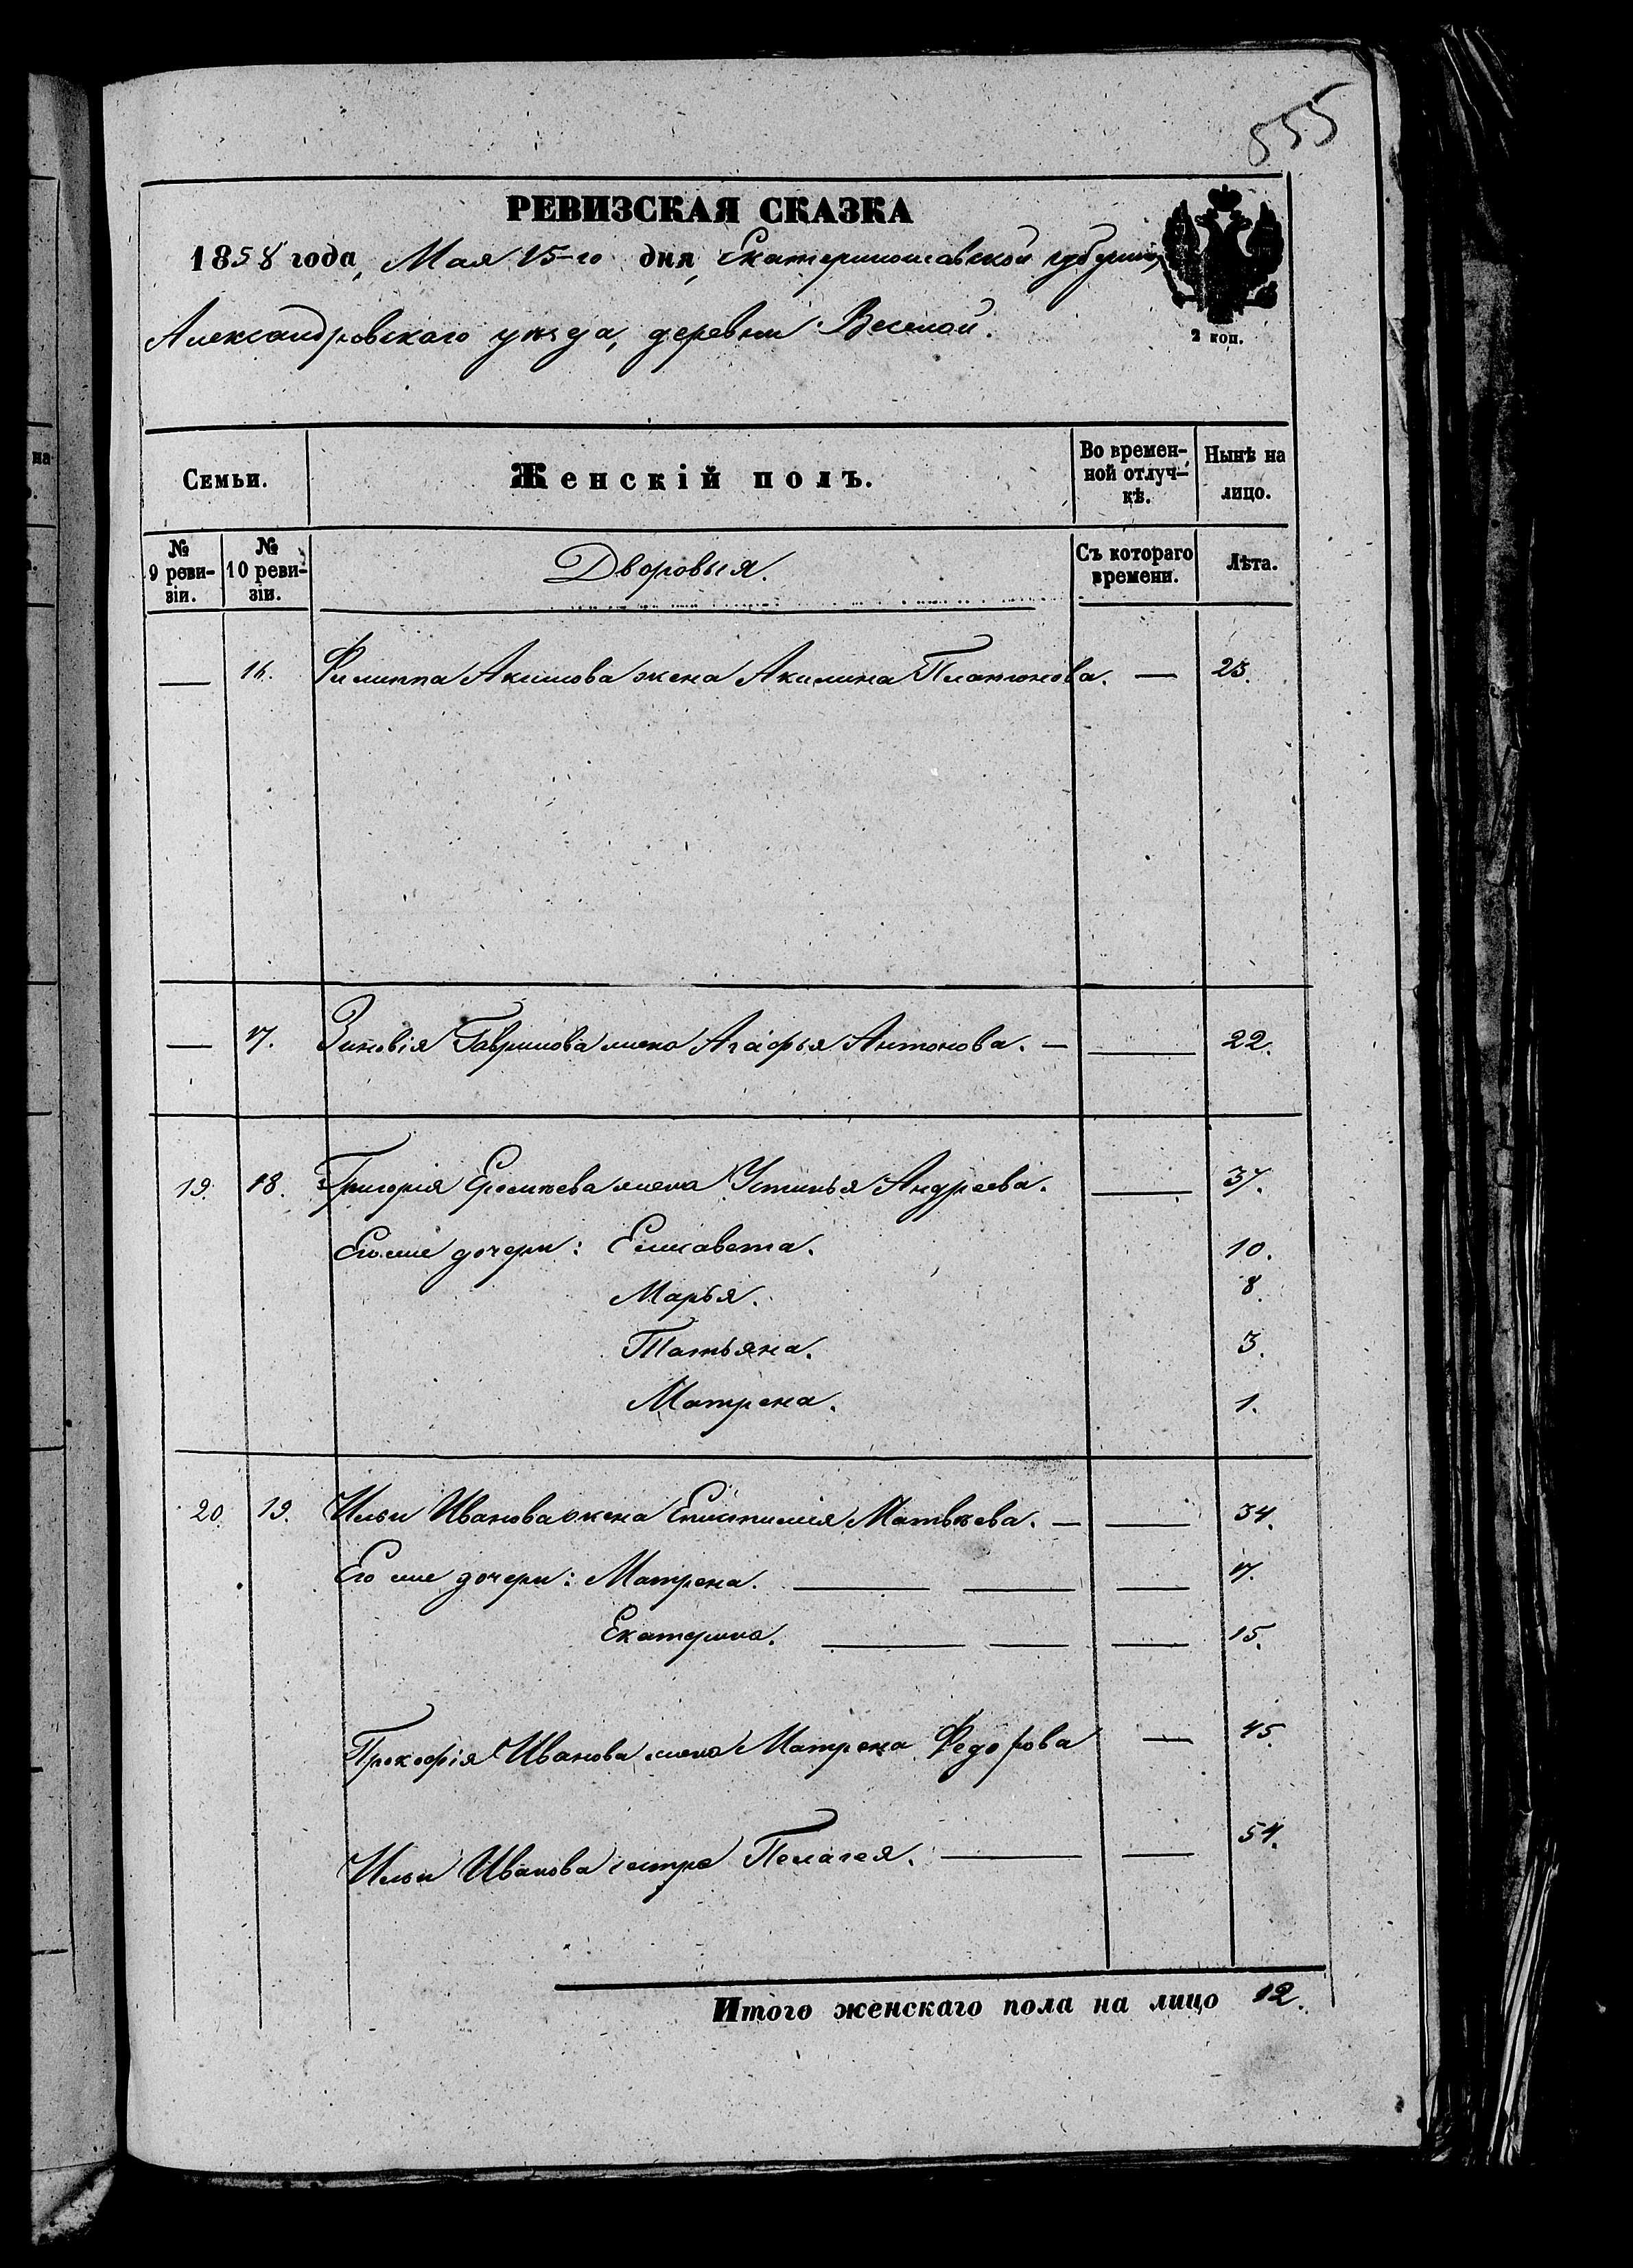 555
РЕВИЗСКАЯ СКАЗКА
1858 года, Мая 15-го дня, Екатеринославской губерніи,
Александровскаго уѣзда, деревни Веселой.
2 коп.
Семьи. Женскій полъ. Во времен-ной отлуч-кѣ. Нынѣ на лицо.
№ 9 реви-зіи. № 10 реви-зіи. Дворовыя. Съ котораго времени. Лѣта.
— 16. Филиппа Акимова жена Акилина Платонова. — 23.
— 17. Зиновія Гаврилова жена Агафья Антонова. — — 22.
19. 18. Григорія Еремѣева жена Устинья Андреева. — 37.
Его же дочери: Елисавета. 10.
Марья. 8.
Татьяна. 3.
Матрена. 1.
20. 19. Ильи Иванова жена Епистимія Матвѣева. — — 34.
Его же дочери: Матрена. — — — 17.
Екатерина. — — — 15.
Прокофія Иванова жена Матрена Федорова — 45.
Ильи Иванова сестра Пелагея. — — 54.
Итого женскаго пола на лицо 12.